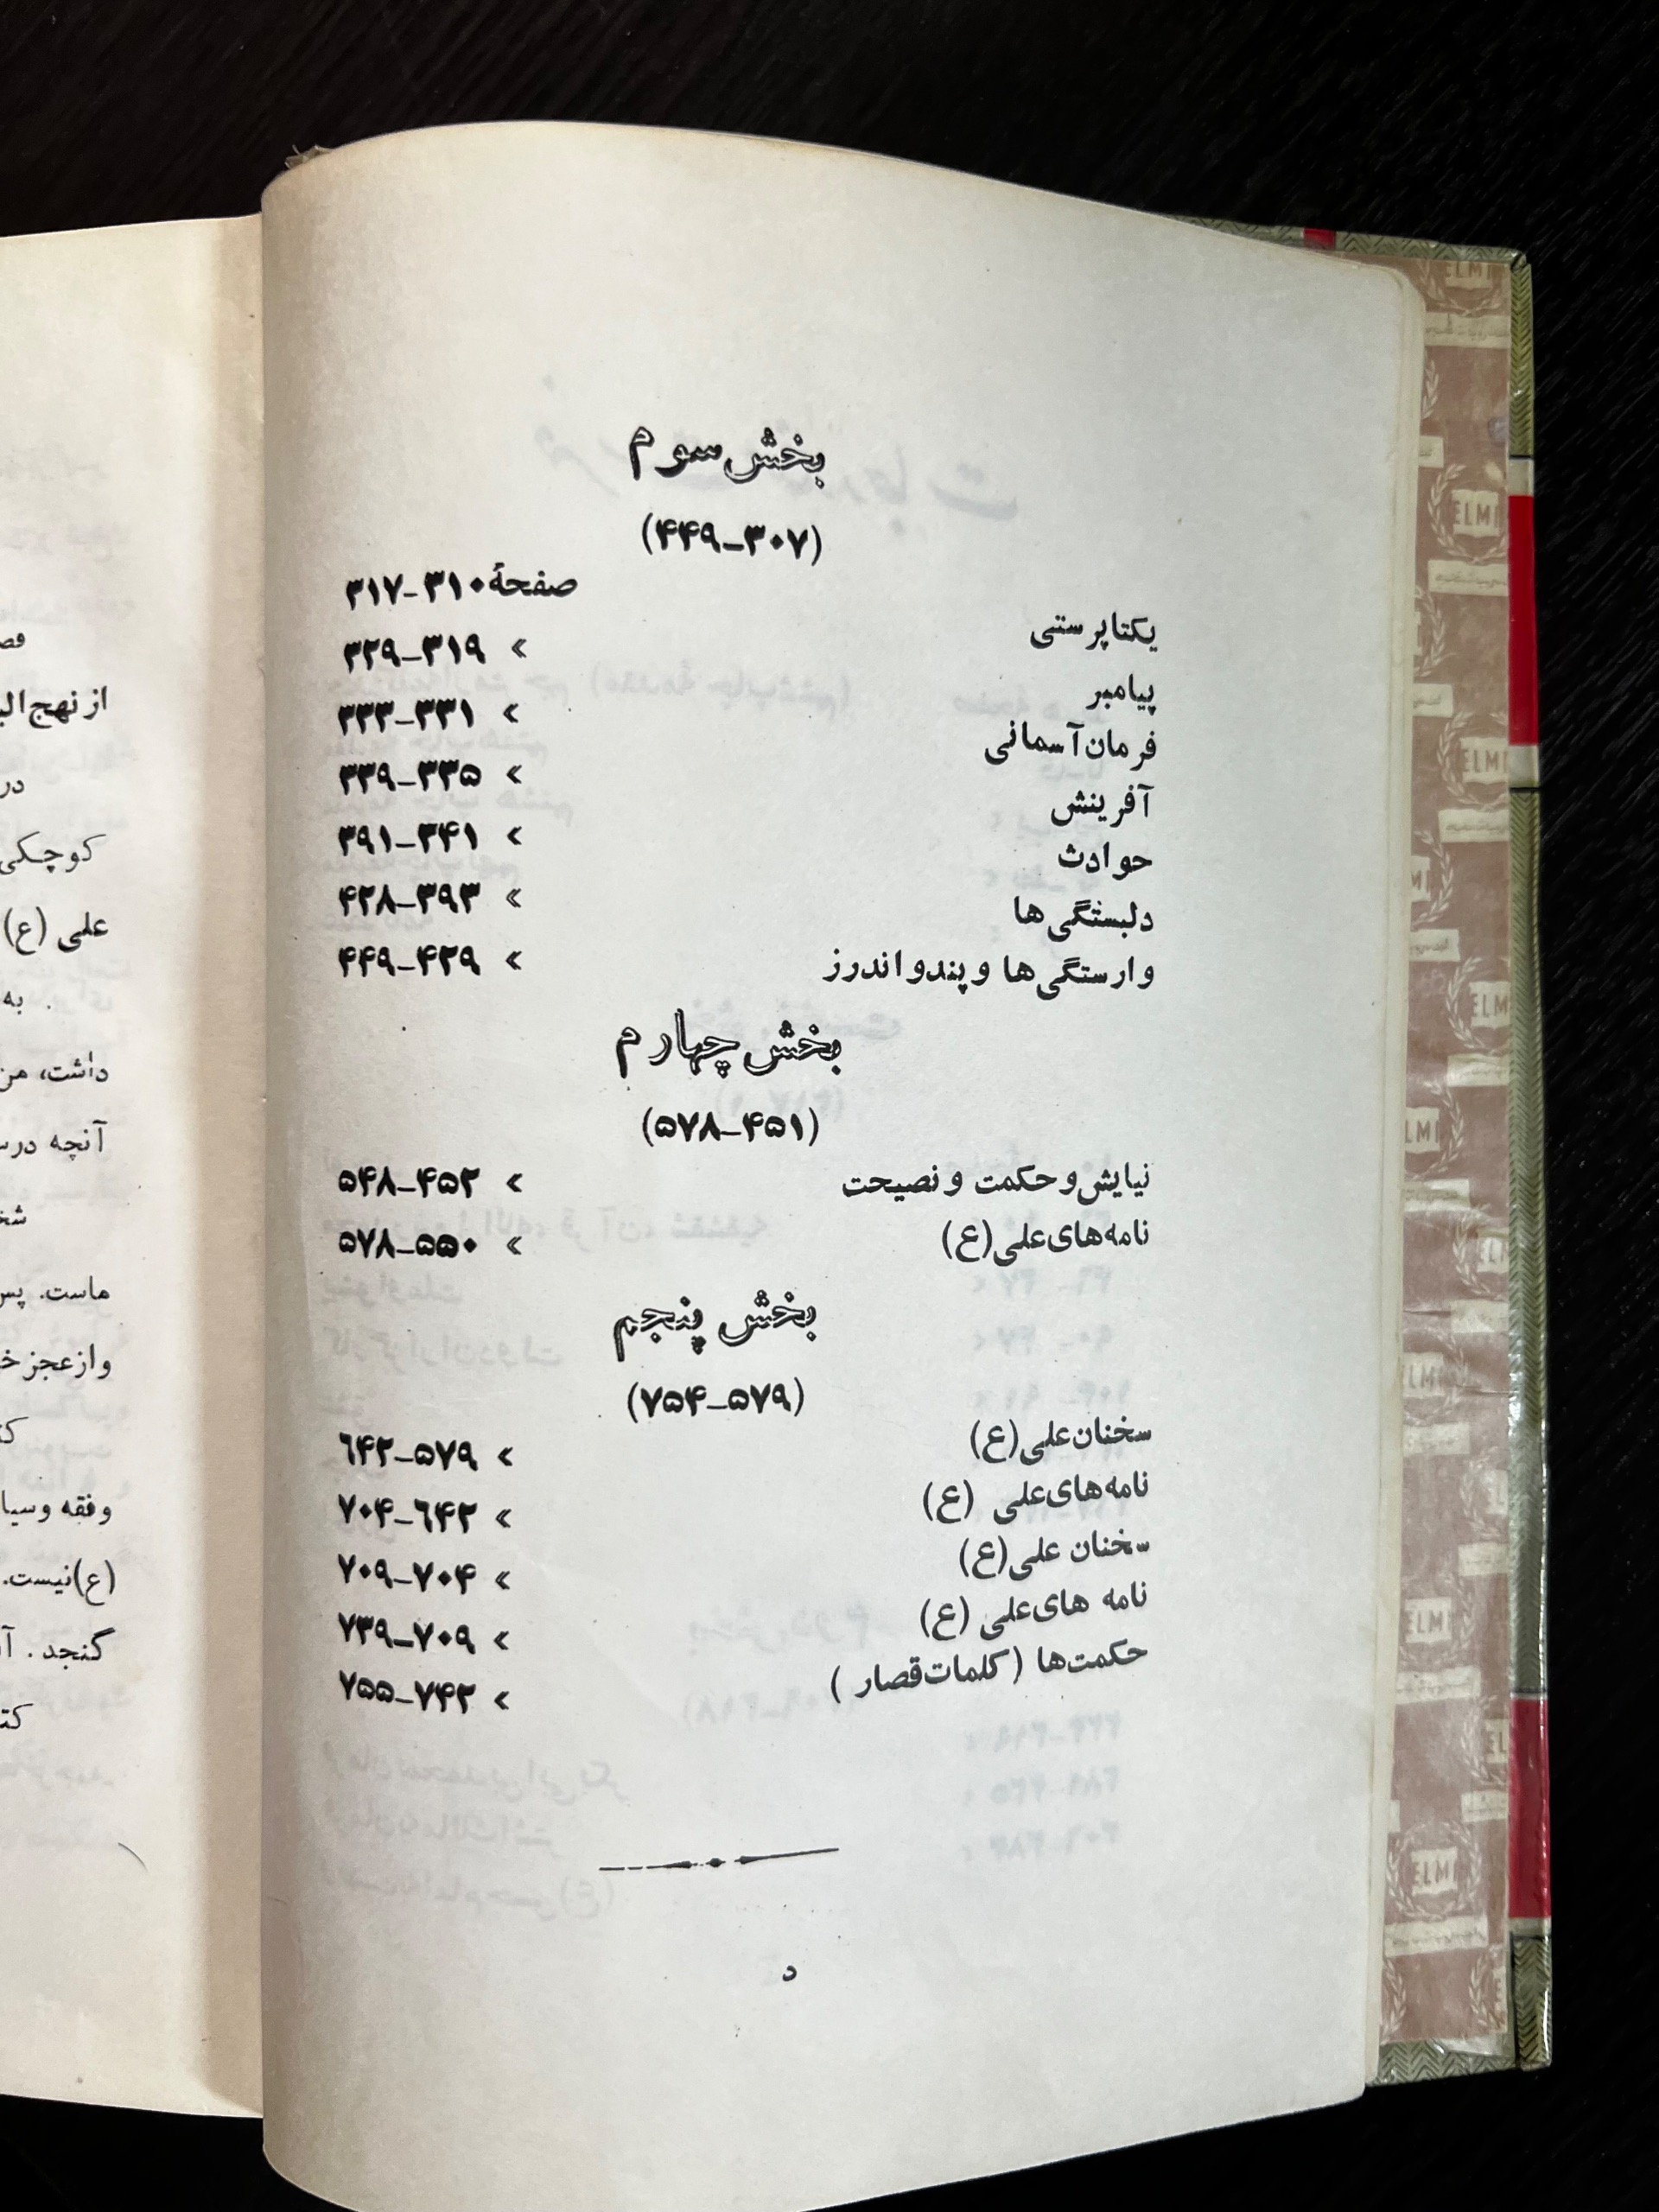 بخش سوم
(۳۰۷-۴۴۹)
یکتاپرستی صفحهٔ ۳۱۰-۳۱۷
پیامبر » ۳۱۹-۳۲۹
فرمان آسمانی » ۳۳۱-۳۳۳
آفرینش » ۳۳۵-۳۳۹
حوادث » ۳۴۱-۳۹۱
دلبستگی ها » ۳۹۳-۴۲۸
وارستگی ها و پند و اندرز » ۴۲۹-۴۴۹
بخش چهارم
(۴۵۱-۵۷۸)
نیایش و حکمت و نصیحت » ۴۵۲-۵۴۸
نامه های علی (ع) » ۵۵۰-۵۷۸
بخش پنجم
(۵۷۹-۷۵۴)
سخنان علی (ع) » ۵۷۹-۶۴۲
نامه های علی (ع) » ۶۴۲-۷۰۴
سخنان علی (ع) » ۷۰۴-۷۰۹
نامه های علی (ع) » ۷۰۹-۷۳۹
حکمت ها (کلمات قصار) » ۷۴۲-۷۵۵
د
از نهج
در
کوچکی
علی (ع)
به
داشت، من
آنچه
ماست. پس
و از عجز
و فقه و
(ع) نیست.
گنجد.
ELMI